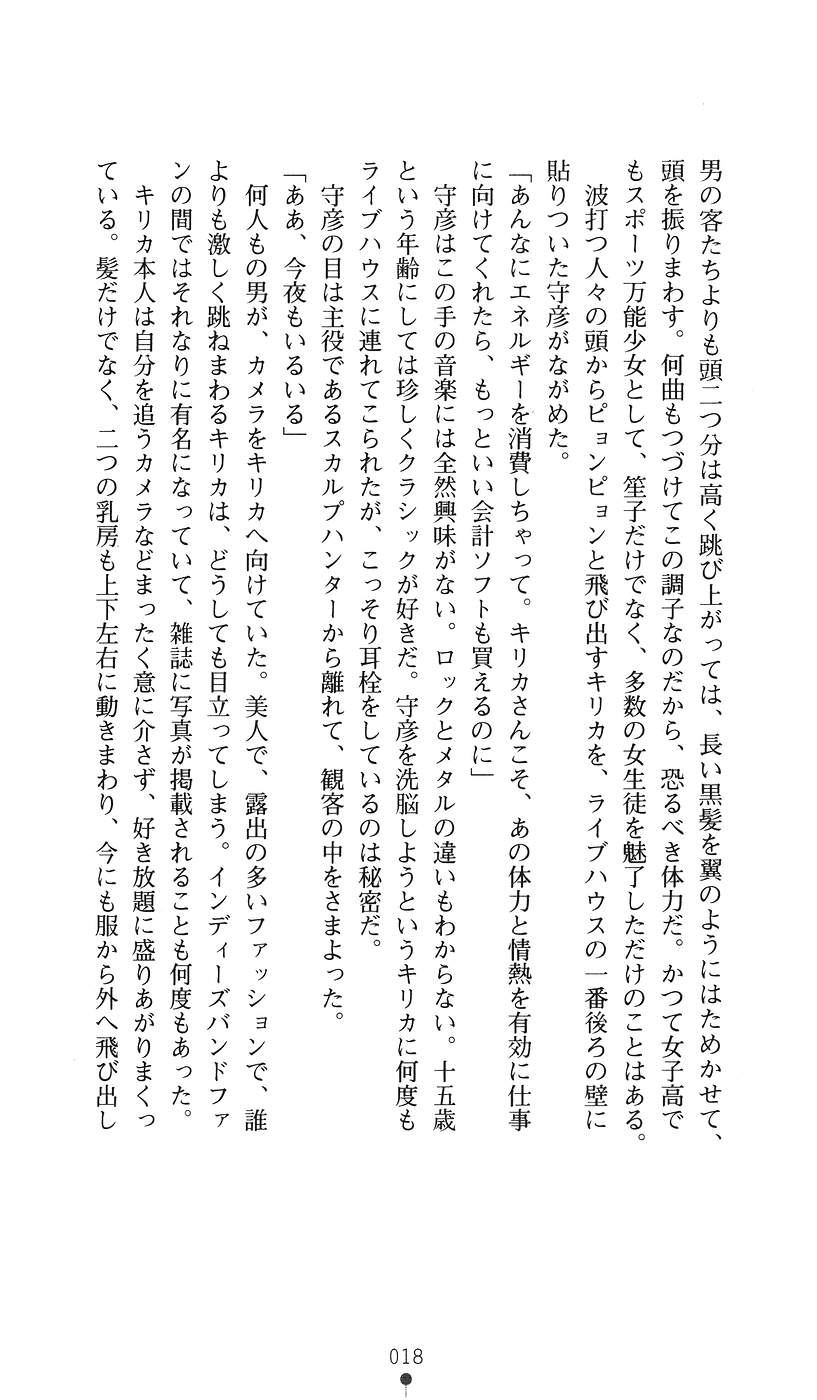 男の客たちよりも頭二つ分は高く跳び上がっては、長い黒髪を翼のようにはためかせて、
頭を振りまわす。何曲もつづけてこの調子なのだから、恐るべき体力だ。かつて女子高で
もスポーツ万能少女として、笙子だけでなく、多数の女生徒を魅了しただけのことはある。
波打つ人々の頭からピョンピョンと飛び出すキリカを、ライブハウスの一番後ろの壁に
貼りついた守彦がながめた。
「あんなにエネルギーを消費しちゃって。キリカさんこそ、あの体力と情熱を有効に仕事
に向けてくれたら、もっといい会計ソフトも買えるのに」
守彦はこの手の音楽には全然興味がない。ロックとメタルの違いもわからない。十五歳
という年齢にしては珍しくクラシックが好きだ。守彦を洗脳しようというキリカに何度も
ライブハウスに連れてこられたが、こっそり耳栓をしているのは秘密だ。
守彦の目は主役であるスカルプハンターから離れて、観客の中をさまよった。
「ああ、今夜もいるいる」
何人もの男が、カメラをキリカへ向けていた。美人で、露出の多いファッションで、誰
よりも激しく跳ねまわるキリカは、どうしても目立ってしまう。インディーズバンドファ
ンの間ではそれなりに有名になっていて、雑誌に写真が掲載されることも何度もあった。
キリカ本人は自分を追うカメラなどまったく意に介さず、好き放題に盛りあがりまくっ
ている。髪だけでなく、二つの乳房も上下左右に動きまわり、今にも服から外へ飛び出し
018